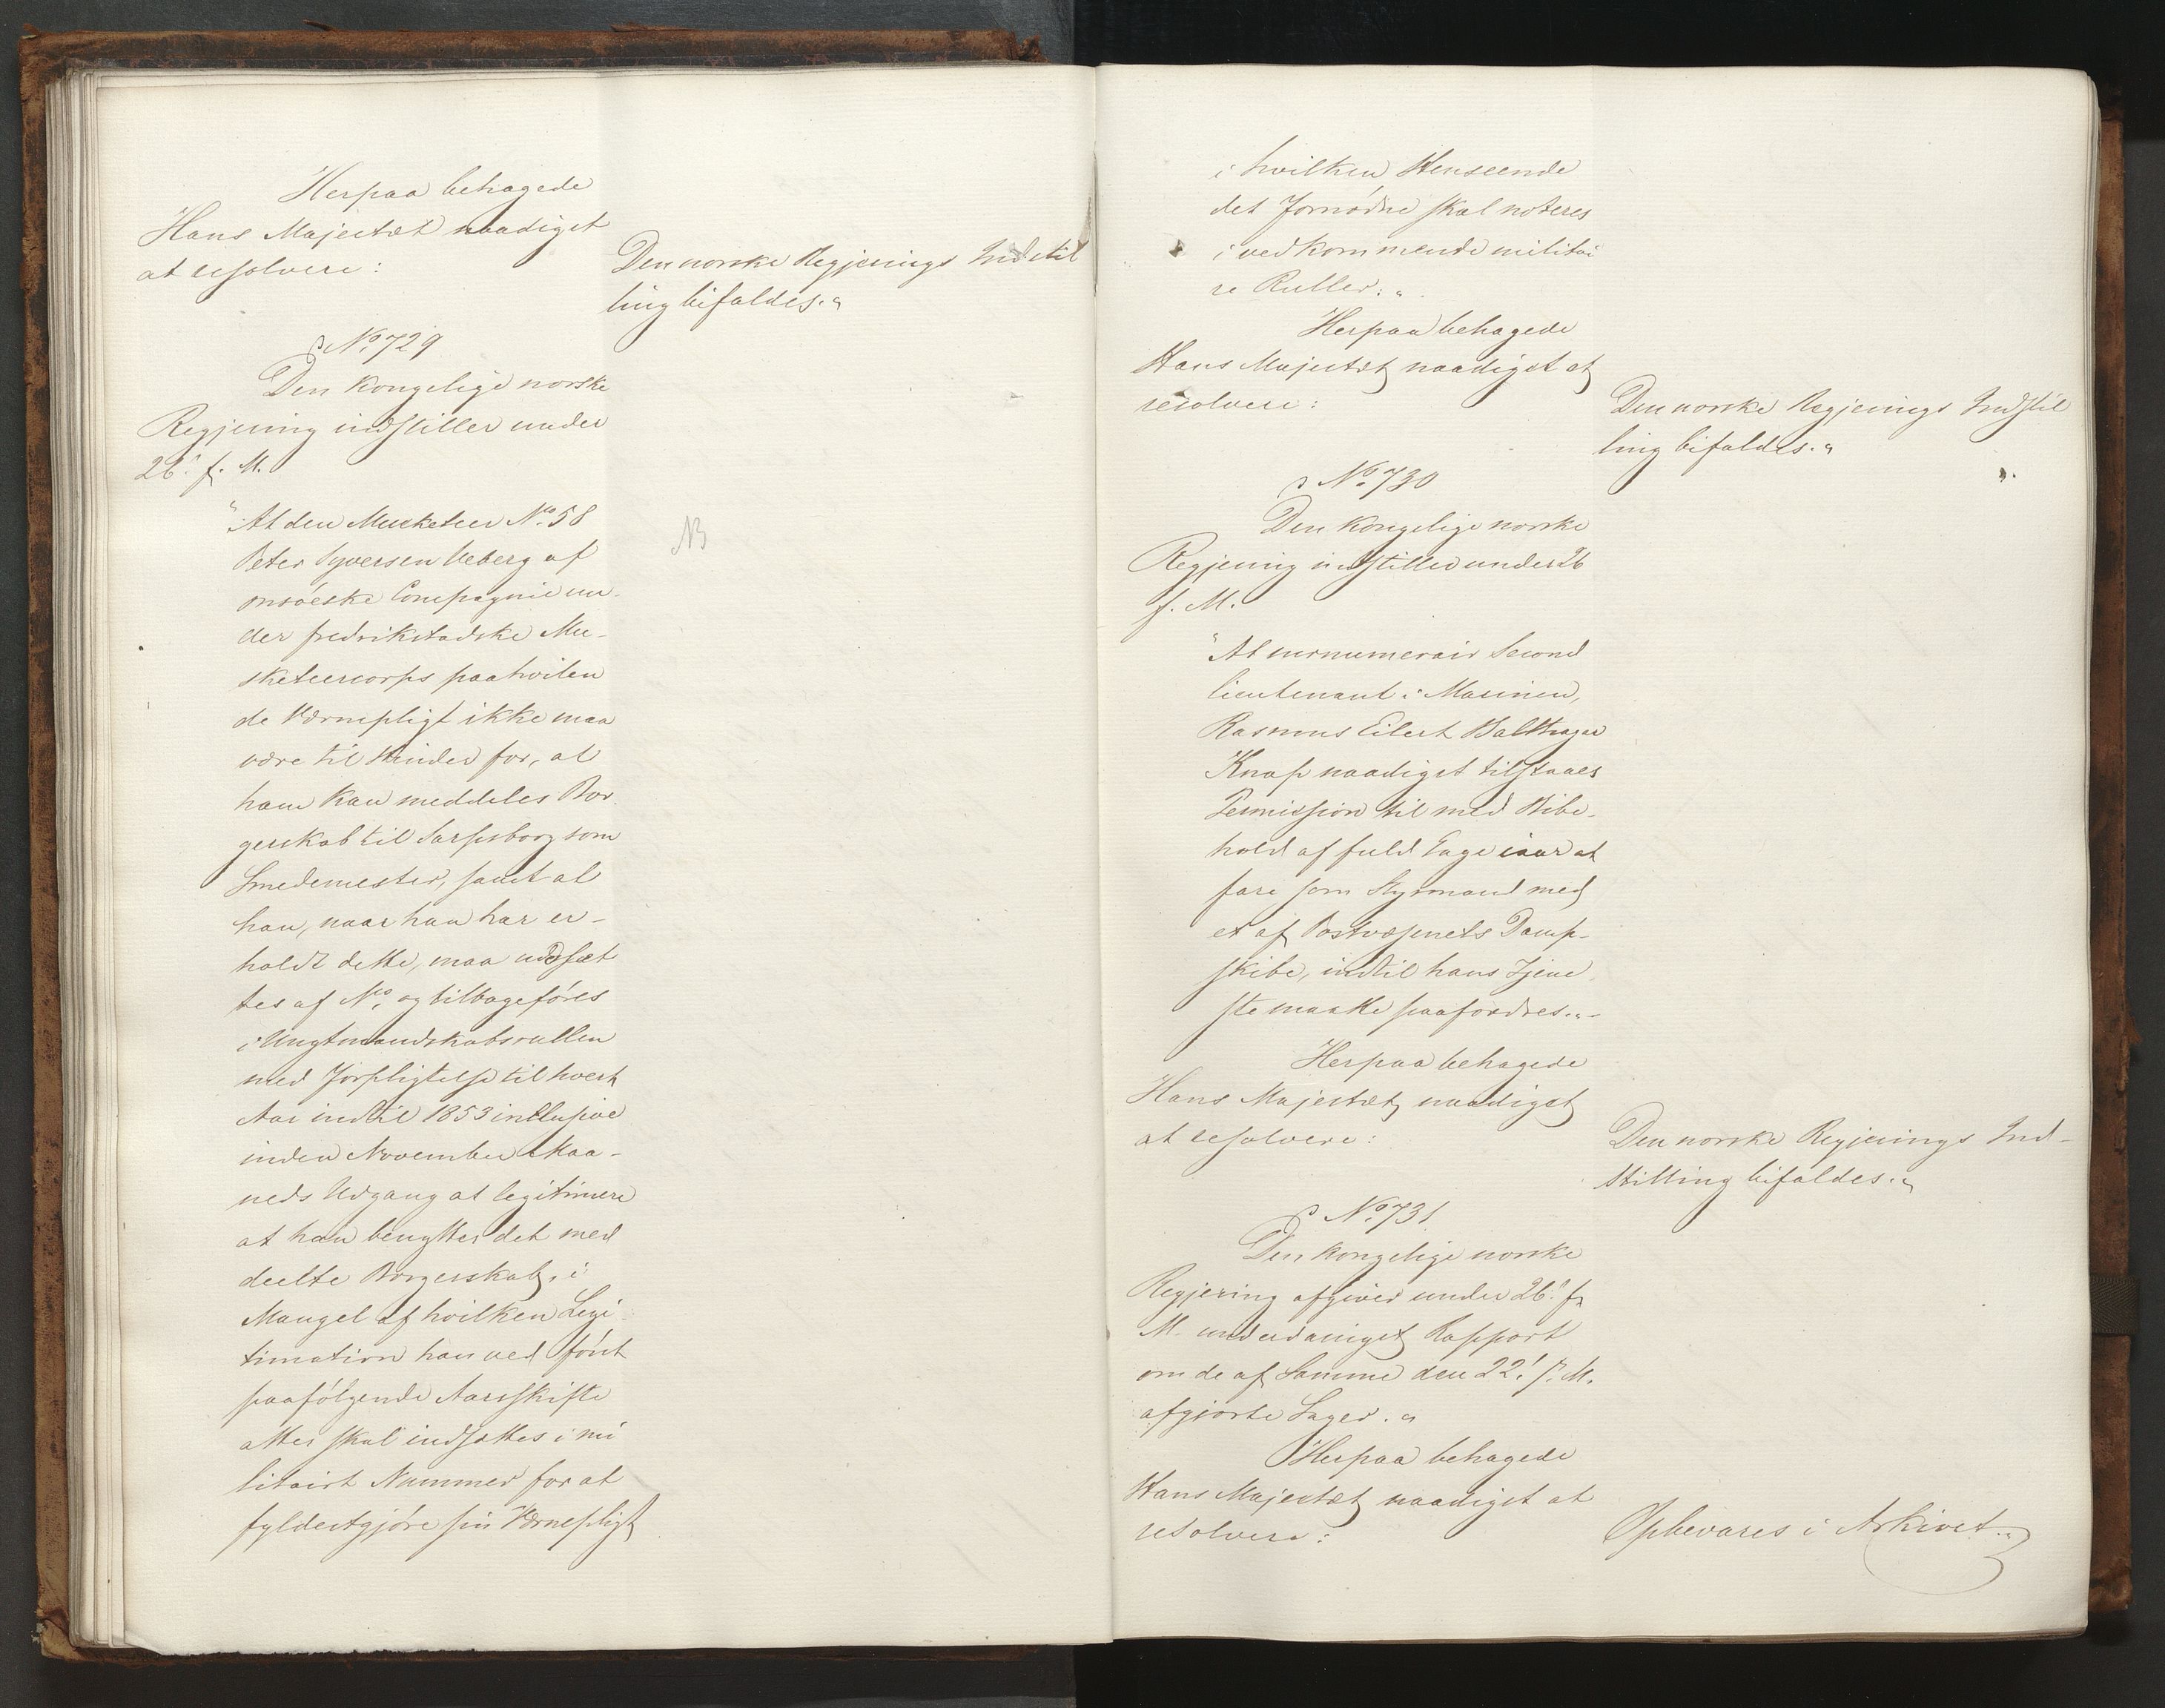 Herpaa behagede
Hans Majestæt naadigst
at resolvere:
Den norske Regjerings Indstil
ling bifaldes."
No. 729
Den kongelige norske
Regjering indstiller under
26. f. M.
"At den Musketeer No. 58
Peter Syversen Ueberg af
onsöeske Compagnie un-
der fredrikstadske Mu-
sketeercorps paahvilen
de Værnepligt ikke maa
være til Hinder for, at
ham kan meddeles Bor
gerskab til Sarpsborg som
Smedemester, samt at
han, naar han har er-
holdt dette, maa udsæt
tes af No. og tilbageføres
i Ungtmandskabsrullen
med Forpligtelse til hvert
Aar indtil 1853 inklusive
inden November Maa-
neds Udgang at legitimere
at han benytter det med
deelte Borgerskab, i
Mangel af hvilken Legi
timation han ved först
paafölgende Aarsskifte
atter skal indsættes i mi
litairt Nummer for at
fyldestgjöre sin Værnepligt
NB
i hvilken Henseende
det Fornödne skal noteres
i vedkommende militai
re Ruller."
Herpaa behagede
Hans Majestæt naadigst at
resolvere:
Den norske Regjerings Indstil
ling bifaldes."
No. 730
Den kongelige norske
Regjering indstiller under 26
f. M.
"At surnumerair Second
lieutenant i Marinen,
Rasmus Eilert Balthazar
Knap naadigst tilstaaes
Permission til med Bibe-
hold af fuld Gage i aar at
fare som Styrmand med
et af Postvæsenets Damp-
skibe, indtil hans Tjene
ste maatte paafordres."
Herpaa behagede
Hans Majestæt naadigst
at resolvere:
Den norske Regjerings Ind-
stilling bifaldes."
No. 731
Den kongelige norske
Regjering afgiver under 26. f.
M. underdanigst Rapport
om de af Samme den 22. f. M.
afgjorte Sager."
Herpaa behagede
Hans Majestæt naadigst at
resolvere:
Opbevares i Arkivet."